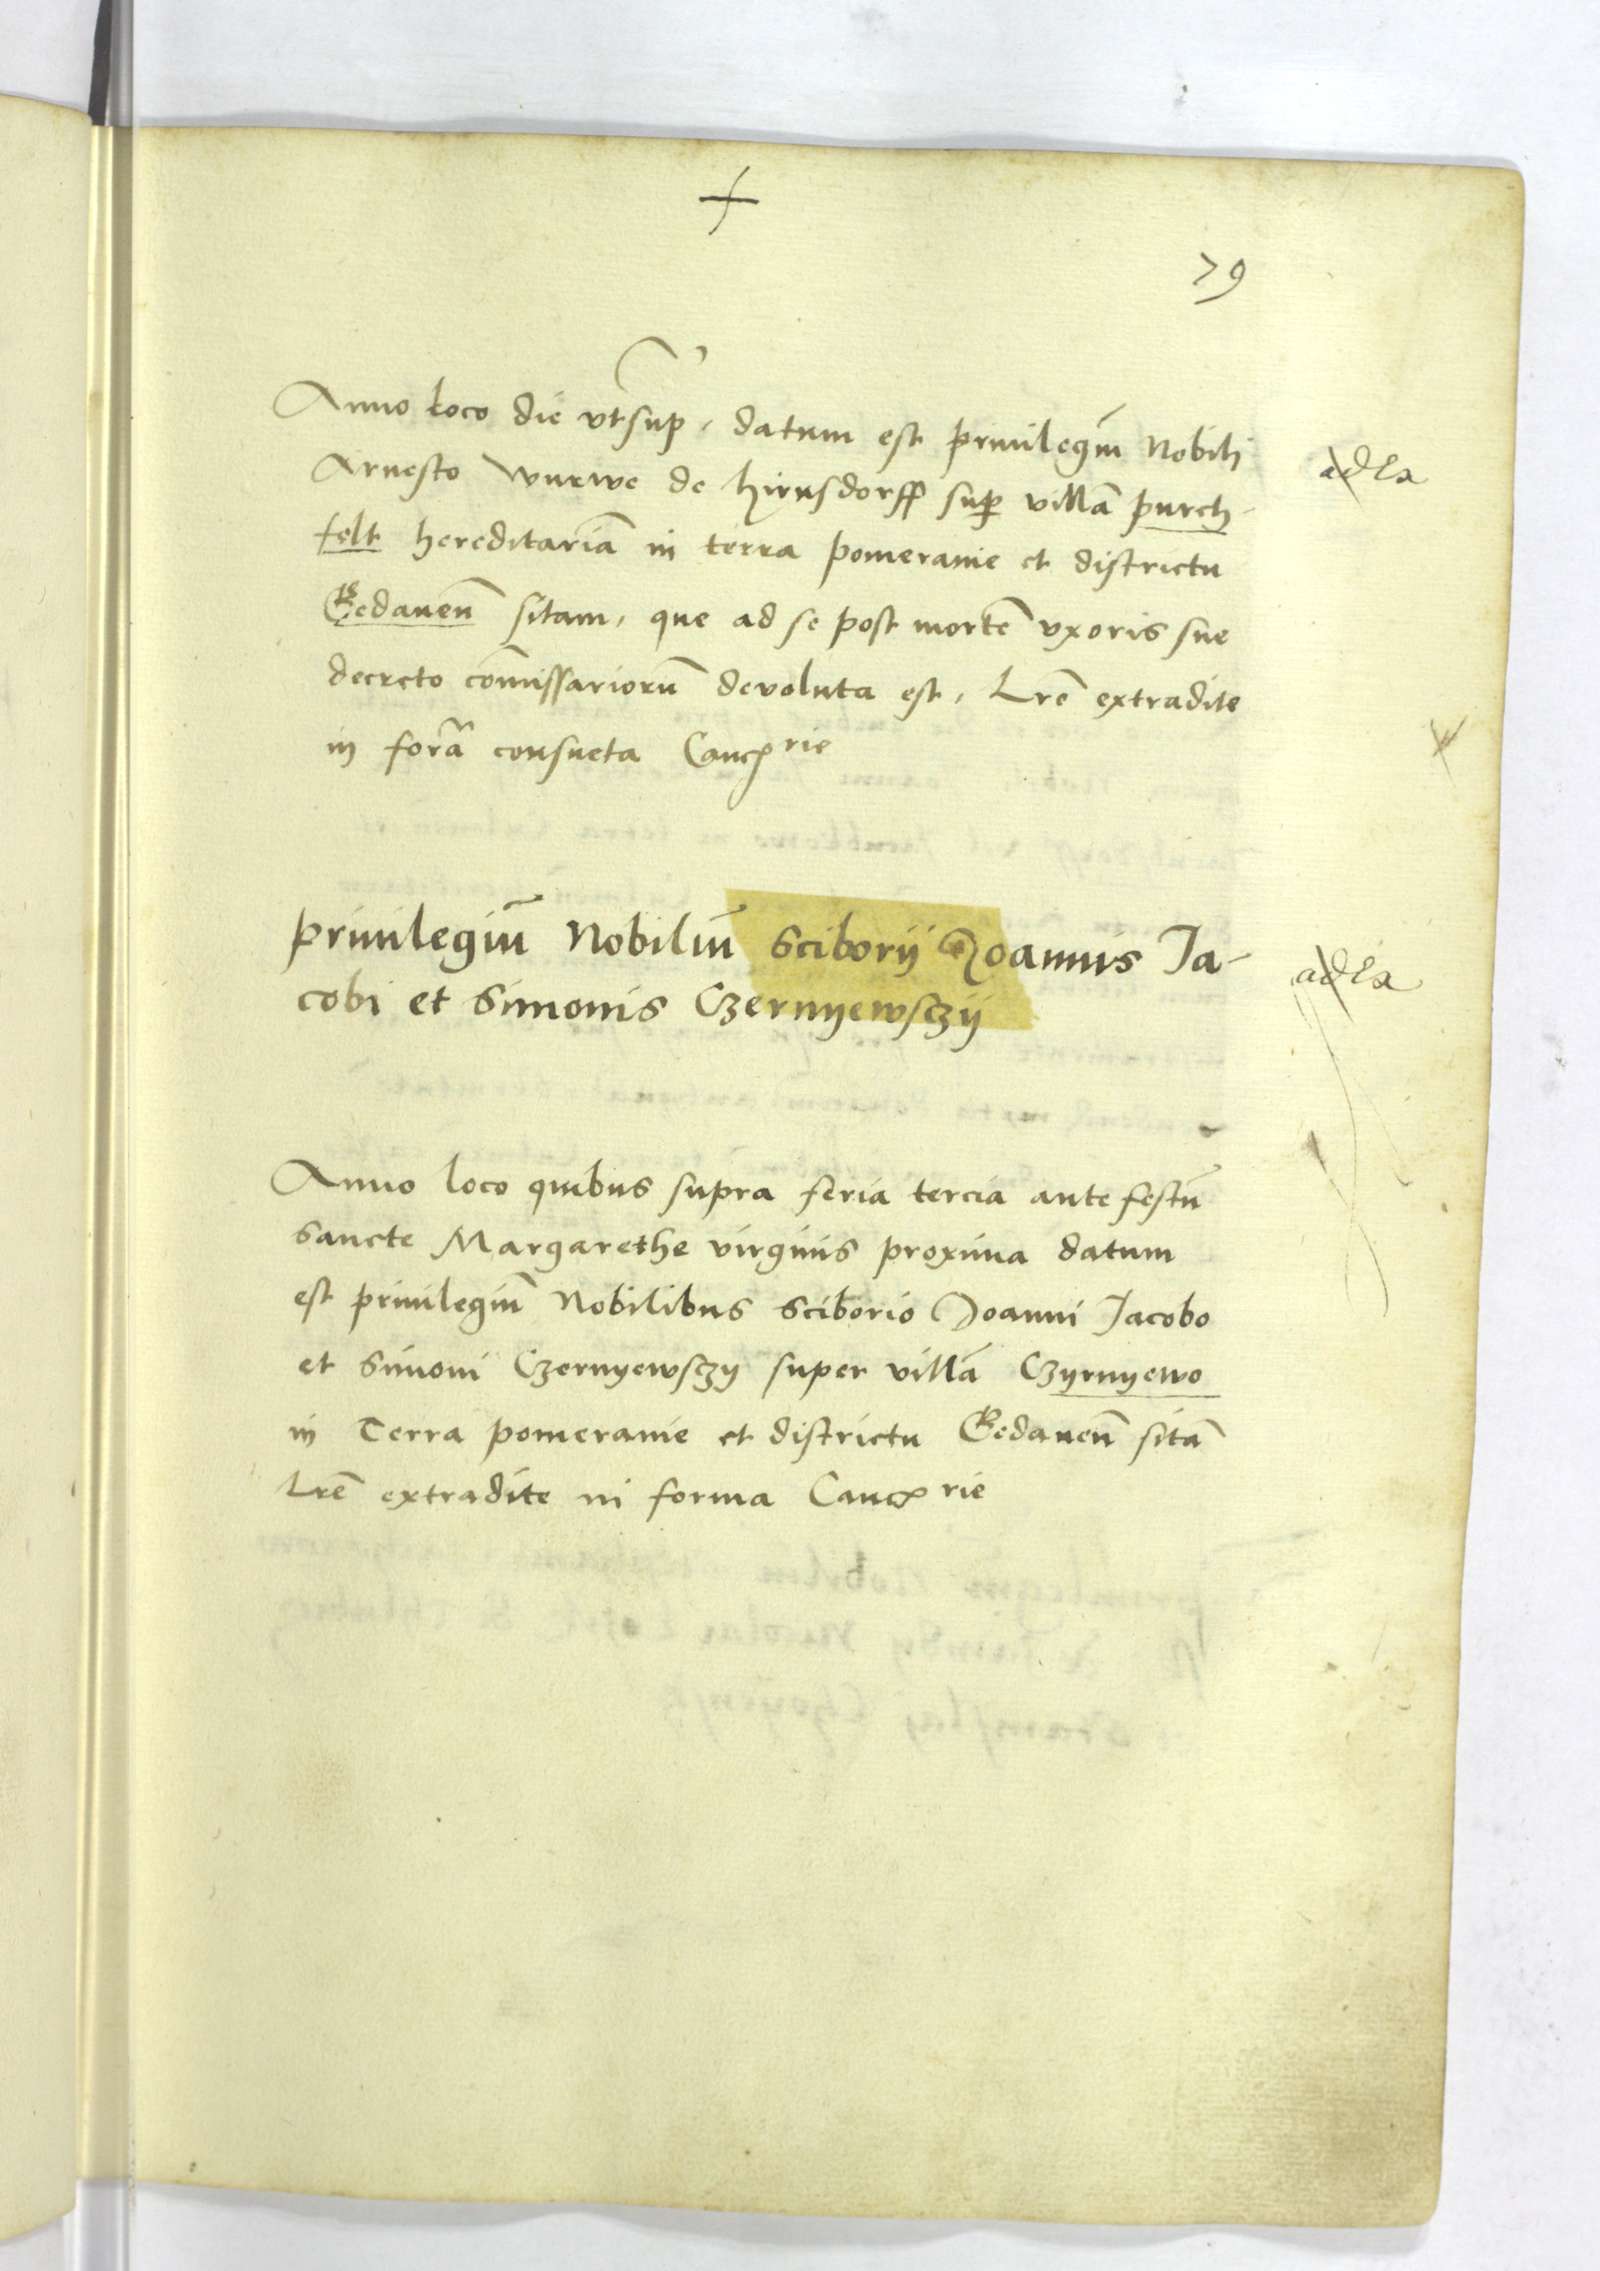 79
Anno loco die vtsup, datum est priuilegiū Nobili
Arnesto wurwe de hirnsdorff sup villā purch-
felt hereditariā in terra pomeranie et districtu
Gedanenn̄ sitam, que ad se post mortē vxoris sue
decreto cōmissariorū devoluta est, Lrē extradite
in forā consueta Cancrie
priuilegiū Nobiliū Sciborii Joannis Ja-
cobi et Simonis Czernyewsczy
Anno loco quibus supra feria tercia ante festū
sancte Margarethe virginis proxima datum
est priuilegiū Nobilibus Sciborio Joanni Jacobo
et Simoni Czernyewsczy super villā Czyrnyewo
in Terra pomeranie et districtu Gedanenn̄ sitā
Lrē extradite in forma Cancrie